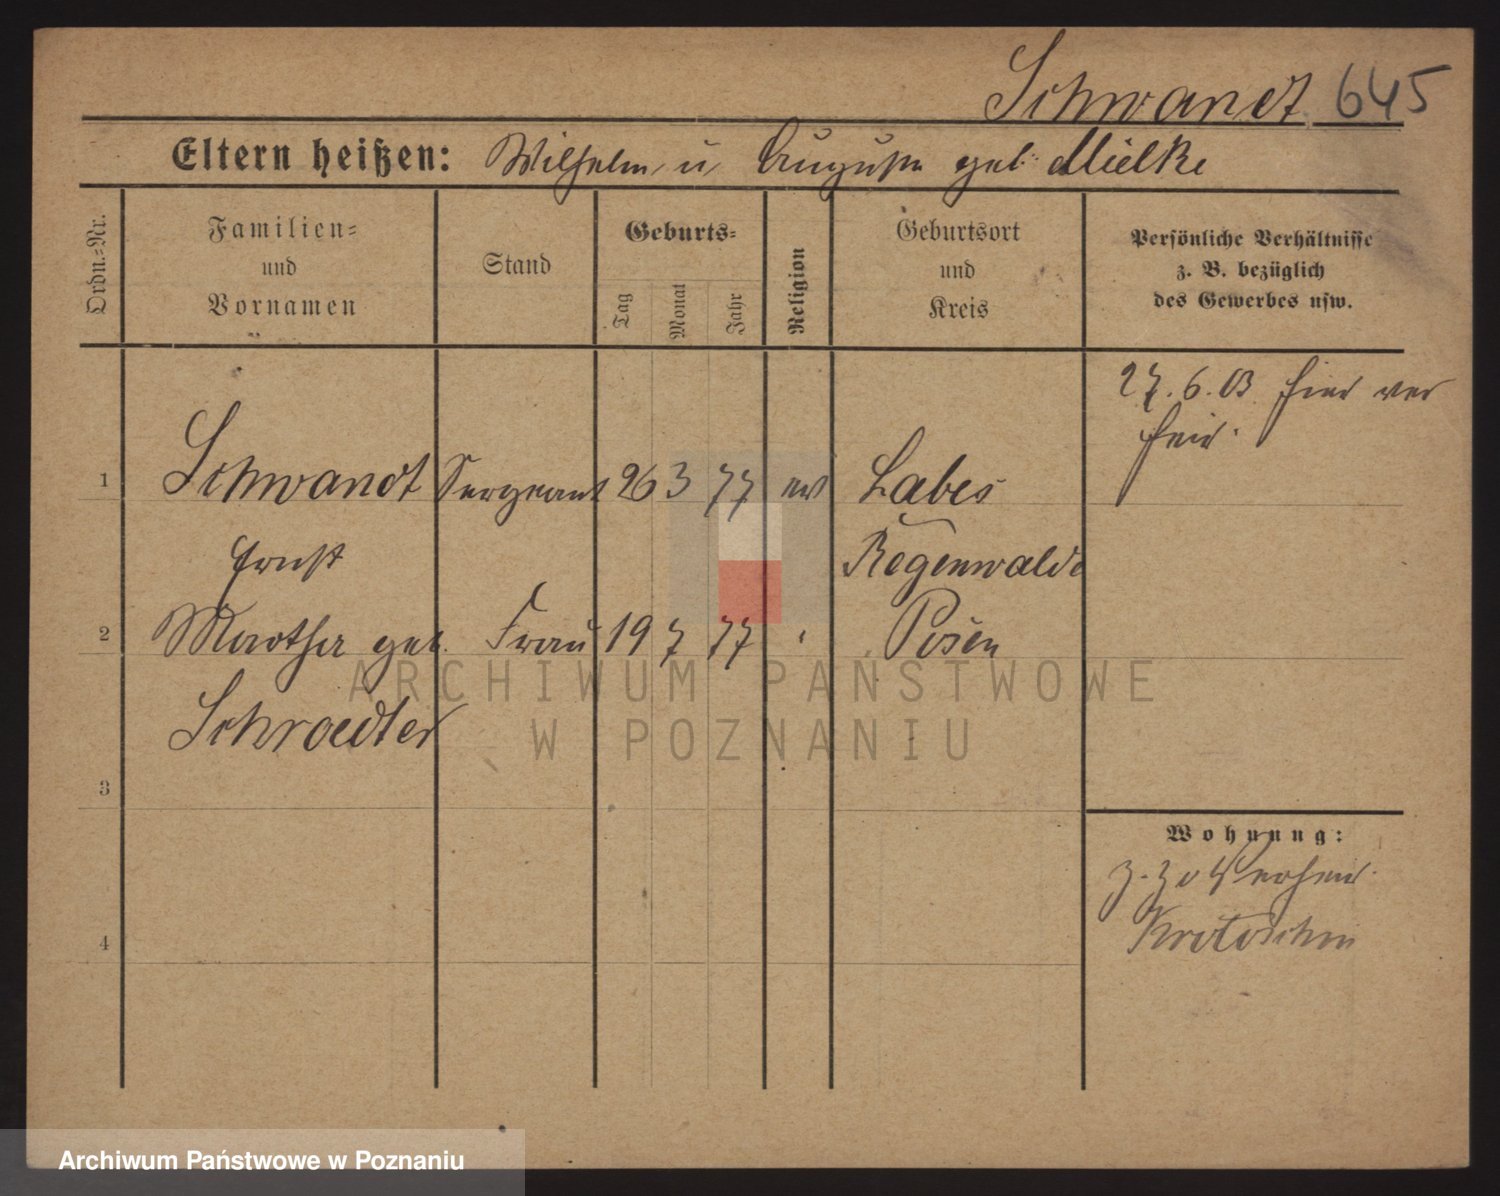 Schwandt 645
Eltern heißen: Wilhelm u Auguste geb. Mielke
Ordn.-Nr.
Familien-
und
Vornamen
Stand
Geburts-
Tag
Monat
Jahr
Religion
Geburtsort
und
Kreis
Persönliche Verhältnisse
z. B. bezüglich
des Gewerbes usw.
27.6.03 hier ver
heir.
1 Schwandt Sergeant 26 3 77 ev Labes
Ernst Regenwalde
2 Martha geb. Frau 19 7 77 " Posen
Schroedter
3
4
Wohnung:
Krotoschin
ARCHIWUM PAŃSTWOWE
W POZNANIU
Archiwum Państwowe w Poznaniu